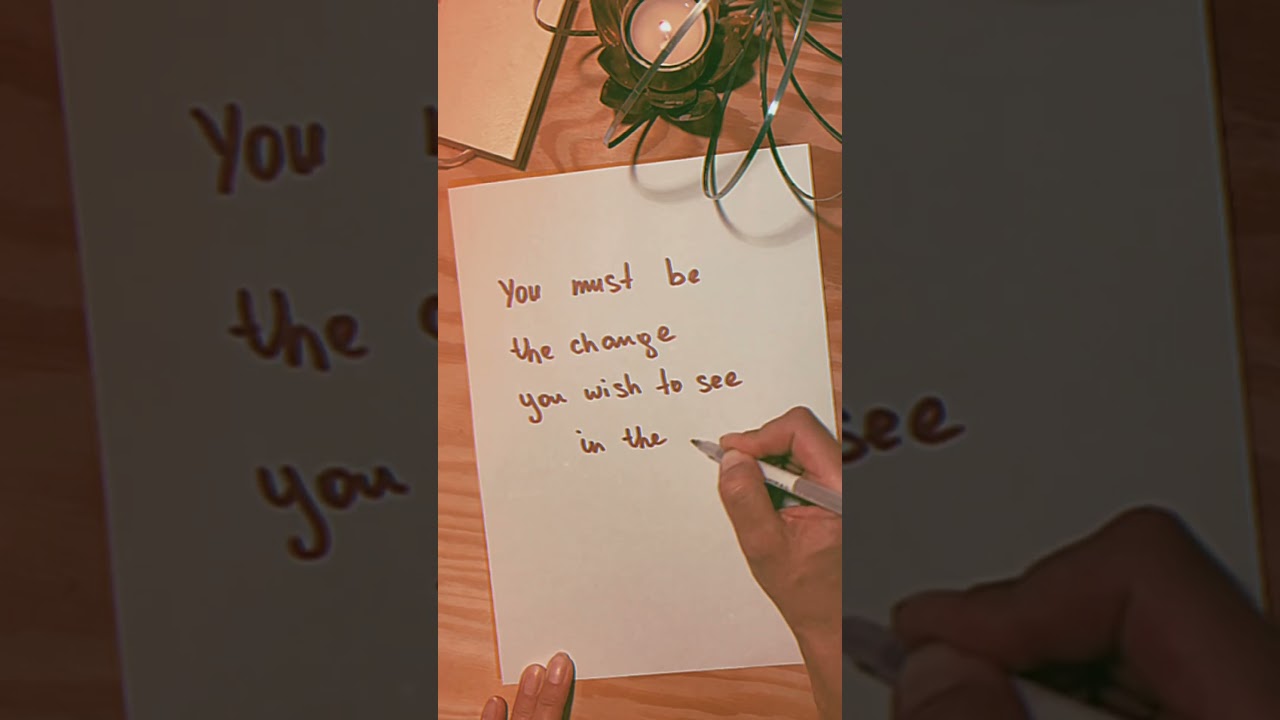 You must be
the change
you wish to see
in the